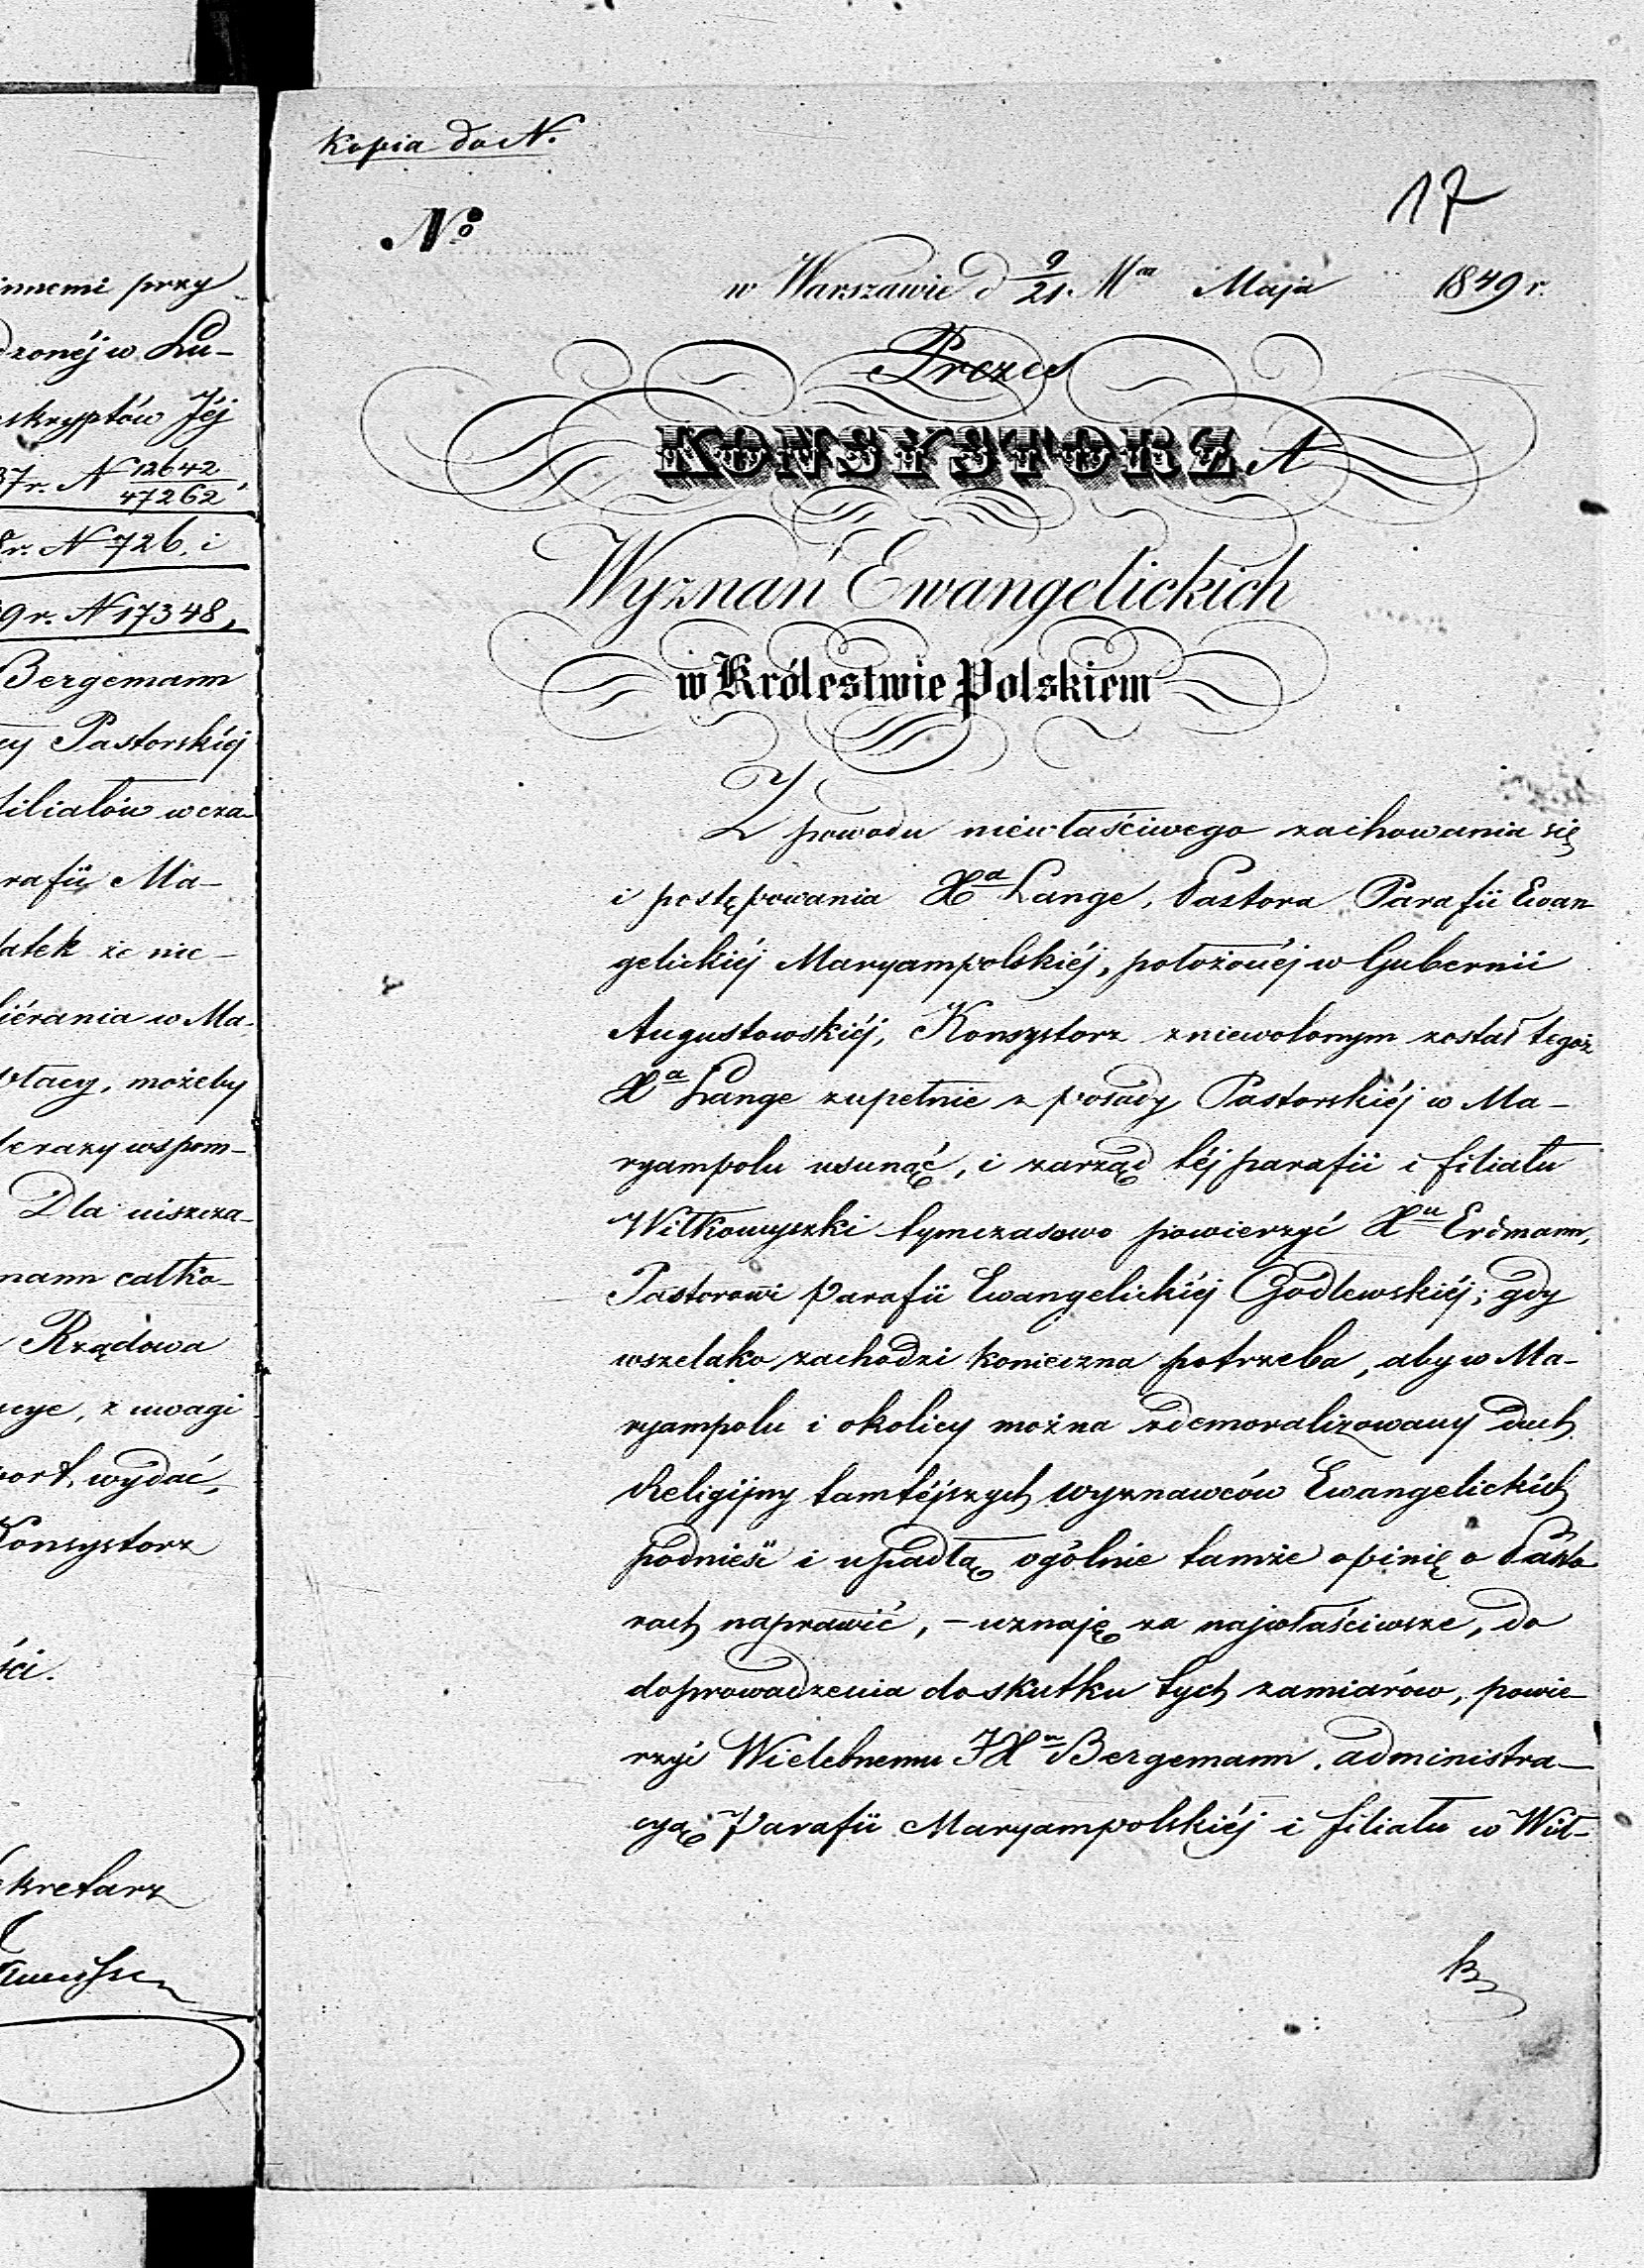 innemi przy
dzonéj w Lu-
skryptów Jéj
37 r. N 12642
47262,
8 r. N 726, i
9 r. N 17348,
Bergemann
cy Pastorskiéj
filiałów w cza-
rafii Ma-
datek że nie-
biérania w Ma-
płacy, możeby
razy wspom-
Dla uiszcza-
mann całko-
Rządowa
cye, z uwagi
port, wydać,
Konsystorz
ści.
ekretarz
Kopia do N.
No
17
w Warszawie d 9/21 Mca Maja 1849 r.
Prezes
KONSYSTORZA
Wyznań Ewangelickich
w Królestwie Polskiem
Z powodu niewłaściwego zachowania się
i postępowania Xa Lange, Pastora Parafii Ewan
gelickiéj Maryampolskiéj, położonéj w Gubernii
Augustowskiéj, Konsystorz zniewolonym został tegoż
Xa Lange zupełnie z posady Pastorskiéj w Ma-
ryampolu usunąć, i zarząd téj parafii i filiału
Wiłkowyszki tymczasowo powierzyć Xu Erdmann,
Pastorowi Parafii Ewangelickiéj Godlewskiéj; gdy
wszelako zachodzi konieczna potrzeba, aby w Ma-
ryampolu i okolicy można zdemoralizowany duch
Religijny tamtéjszych wyznawców Ewangelickich
podnieść i upadłą ogólnie tamże opinię o Pasto
rach naprawić, - uznaję za najwłaściwsze, do
doprowadzenia do skutku tych zamiarów, powie-
rzyć Wielebnemu JXu Bergemann, administra-
cyą Parafii Maryampolskiéj i filiału w Wił-